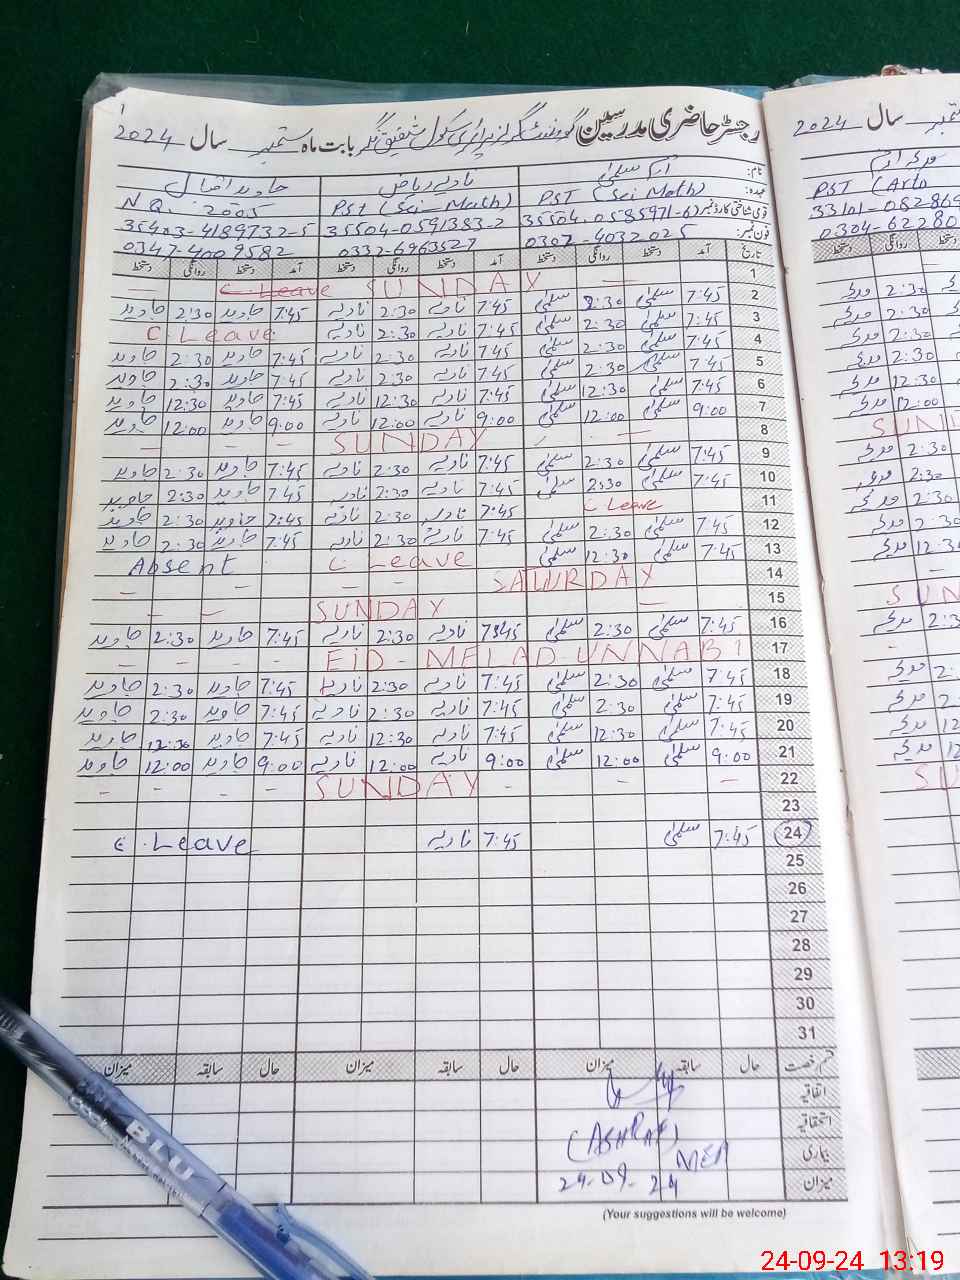 رجسٹر حاضری مدرسین گورنمنٹ گرلز پرائمری سکول شفیق نگر بابت ماہ ستمبر سال 2024
نام: سلمیٰ نادیہ ریاض جاوید اقبال
عہدہ: PST (Sci Math) PST (Sci-Math) N.Q.
قومی شناختی کارڈ نمبر: 35504-0591383-2 35403-4189732-5
فون نمبر: 0307-4032025 0332-6963527 0347-4009582
تاریخ آمد دستخط روانگی دستخط آمد دستخط روانگی دستخط آمد دستخط روانگی دستخط
1 — SUNDAY C. Leave —
2 7:45 سلمیٰ 2:30 سلمیٰ 7:45 نادیہ 2:30 نادیہ 7:45 جاوید 2:30 جاوید
3 7:45 سلمیٰ 2:30 سلمیٰ 7:45 نادیہ 2:30 نادیہ C. Leave
4 7:45 سلمیٰ 2:30 سلمیٰ 7:45 نادیہ 2:30 نادیہ 7:45 جاوید 2:30 جاوید
5 7:45 سلمیٰ 2:30 سلمیٰ 7:45 نادیہ 2:30 نادیہ 7:45 جاوید 2:30 جاوید
6 7:45 سلمیٰ 12:30 سلمیٰ 7:45 نادیہ 12:30 نادیہ 7:45 جاوید 12:30 جاوید
7 9:00 سلمیٰ 12:00 سلمیٰ 9:00 نادیہ 12:00 نادیہ 9:00 جاوید 12:00 جاوید
8 — SUNDAY — — —
9 7:45 سلمیٰ 2:30 سلمیٰ 7:45 نادیہ 2:30 نادیہ 7:45 جاوید 2:30 جاوید
10 7:45 سلمیٰ 2:30 سلمیٰ 7:45 نادیہ 2:30 نادیہ 7:45 جاوید 2:30 جاوید
11 C Leave 7:45 نادیہ 2:30 نادیہ 7:45 جاوید 2:30 جاوید
12 7:45 سلمیٰ 2:30 سلمیٰ 7:45 نادیہ 2:30 نادیہ 7:45 جاوید 2:30 جاوید
13 7:45 سلمیٰ 12:30 سلمیٰ C Leave Absent
14 SATURDAY - - - -
15 — SUNDAY — —
16 7:45 سلمیٰ 2:30 سلمیٰ 7:45 نادیہ 2:30 نادیہ 7:45 جاوید 2:30 جاوید
17 EID-MELAD-UNNABI - - -
18 7:45 سلمیٰ 2:30 سلمیٰ 7:45 نادیہ 2:30 نادیہ 7:45 جاوید 2:30 جاوید
19 7:45 سلمیٰ 2:30 سلمیٰ 7:45 نادیہ 2:30 نادیہ 7:45 جاوید 2:30 جاوید
20 7:45 سلمیٰ 12:30 سلمیٰ 7:45 نادیہ 12:30 نادیہ 7:45 جاوید 12:30 جاوید
21 9:00 سلمیٰ 12:00 سلمیٰ 9:00 نادیہ 12:00 نادیہ 9:00 جاوید 12:00 جاوید
22 - - - SUNDAY - - -
23
24 7:45 سلمیٰ 7:45 نادیہ C. Leave
25
26
27
28
29
30
31
قسم رخصت حال سابقہ میزان حال سابقہ میزان حال سابقہ میزان
اتفاقیہ
استحقاقیہ
بیماری
میزان
(ASHRAF)
MEA
24-09-24
(Your suggestions will be welcome)
سال 2024
PST (Arts
33101-082869
0304-62280
BLU
24-09-24 13:19